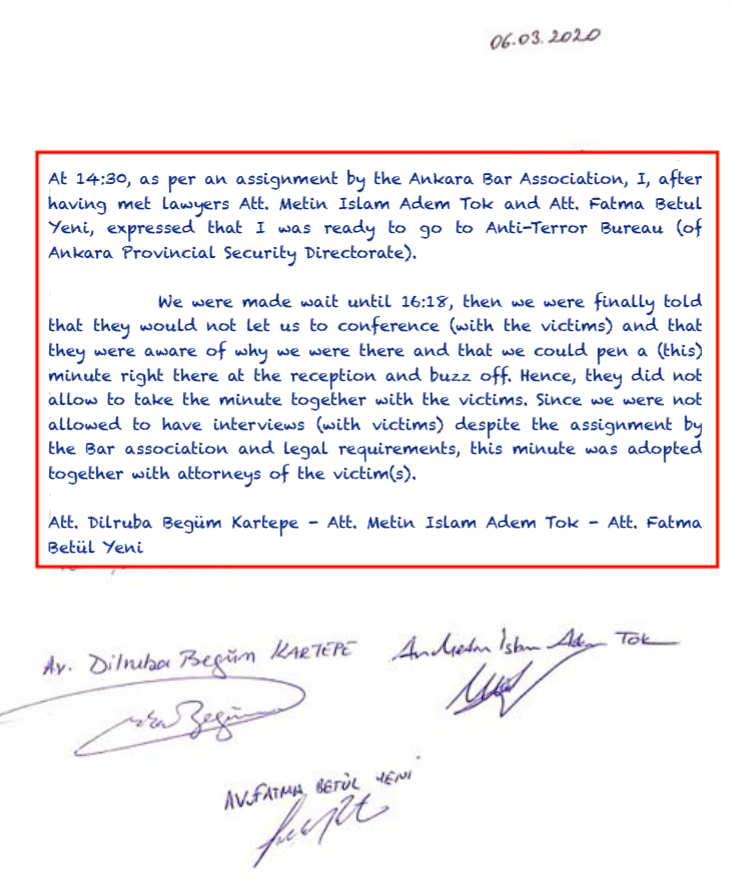 06.03.2020
At 14:30, as per an assignment by the Ankara Bar Association, I, after
having met lawyers Att. Metin Islam Adem Tok and Att. Fatma Betul
Yeni, expressed that I was ready to go to Anti-Terror Bureau (of
Ankara Provincial Security Directorate).
We were made wait until 16:18, then we were finally told
that they would not let us to conference (with the victims) and that
they were aware of why we were there and that we could pen a (this)
minute right there at the reception and buzz off. Hence, they did not
allow to take the minute together with the victims. Since we were not
allowed to have interviews (with victims) despite the assignment by
the Bar association and legal requirements, this minute was adopted
together with attorneys of the victim(s).
Att. Dilruba Begüm Kartepe - Att. Metin Islam Adem Tok - Att. Fatma
Betül Yeni
Av. Dilruba Begüm KARTEPE
Av. Metin İslam Adem TOK
Begüm
AV. FATMA BETÜL YENİ